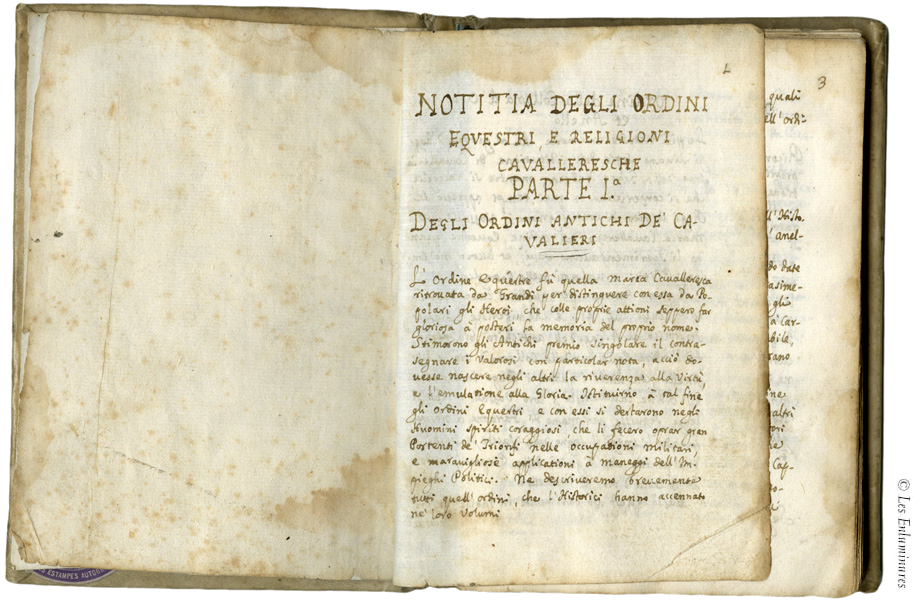 1
NOTITIA DEGLI ORDINI
EQVESTRI, E RELIGIONI
CAVALLERESCHE
PARTE I.ª
DEGLI ORDINI ANTICHI DE' CA-
VALIERI
L' Ordine Equestre fù quella marca Cavalleresca
ritrovata da Grandi per distinguere con essa da Po-
polari gli Heroi che colle proprie attioni seppero far
gloriosa à posteri la memoria del proprio nome.
Stimorono gli Antichi premio singolare il contra-
segnare i Valorosi con particolar nota, acciò do-
vesse nascere negli altri la riverenza alla Virtù,
e l'emulatione alla Gloria. Istituirno à tal fine
gli Ordini Equestri, e con essi si destarono negli
Huomini spiriti coraggiosi, che li fecero oprar gran
Portenti de' Trionfi nelle occupationi militari,
e maravigliose applicationi à maneggi dell' Im-
pieghi Politici. Ne descriveremo brevemente
tutti quell' ordini, che l' Historici hanno accennato
ne' loro Volumi
3
quali
ell' ordi-
ll' Histo.
l' anel-
do date
asime-
gli
à Car-
bile,
rano
ne
altri
ori
he
Cap-
o-
li
ESTAMPES AUTOG
© Les Enluminures